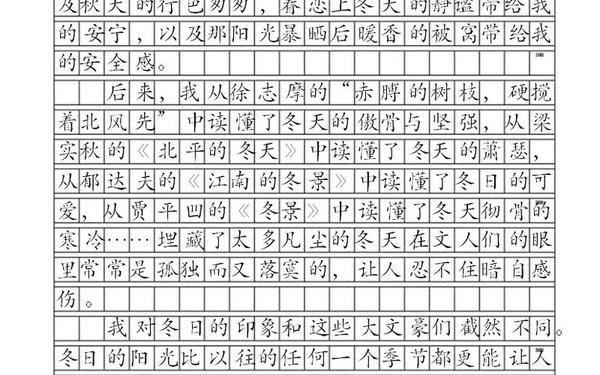 及秋天的行色匆匆，眷恋上冬天的静谧带给我
的安宁，以及那阳光暴晒后暖香的被窝带给我
的安全感。
100
后来，我从徐志摩的“赤膊的树枝，硬搅
着北风先”中读懂了冬天的傲骨与坚强，从梁
实秋的《北平的冬天》中读懂了冬天的萧瑟，
从郁达夫的《江南的冬景》中读懂了冬日的可
爱，从贾平凹的《冬景》中读懂了冬天彻骨的
寒冷……埋藏了太多凡尘的冬天在文人们的眼
里常常是孤独而又落寞的，让人忍不住暗自感
伤。
我对冬日的印象和这些大文豪们截然不同。
冬日的阳光比以往的任何一个季节都更能让人